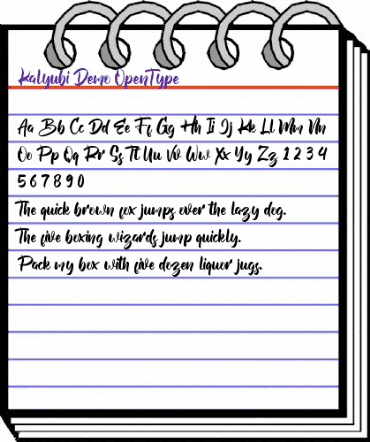 Kalyubi Demo OpenType
Aa Bb Cc Dd Ee Ff Gg Hh Ii Jj Kk Ll Mm Nn
Oo Pp Qq Rr Ss Tt Uu Vv Ww Xx Yy Zz 1 2 3 4
5 6 7 8 9 0
The quick brown fox jumps over the lazy dog.
The five boxing wizards jump quickly.
Pack my box with five dozen liquor jugs.